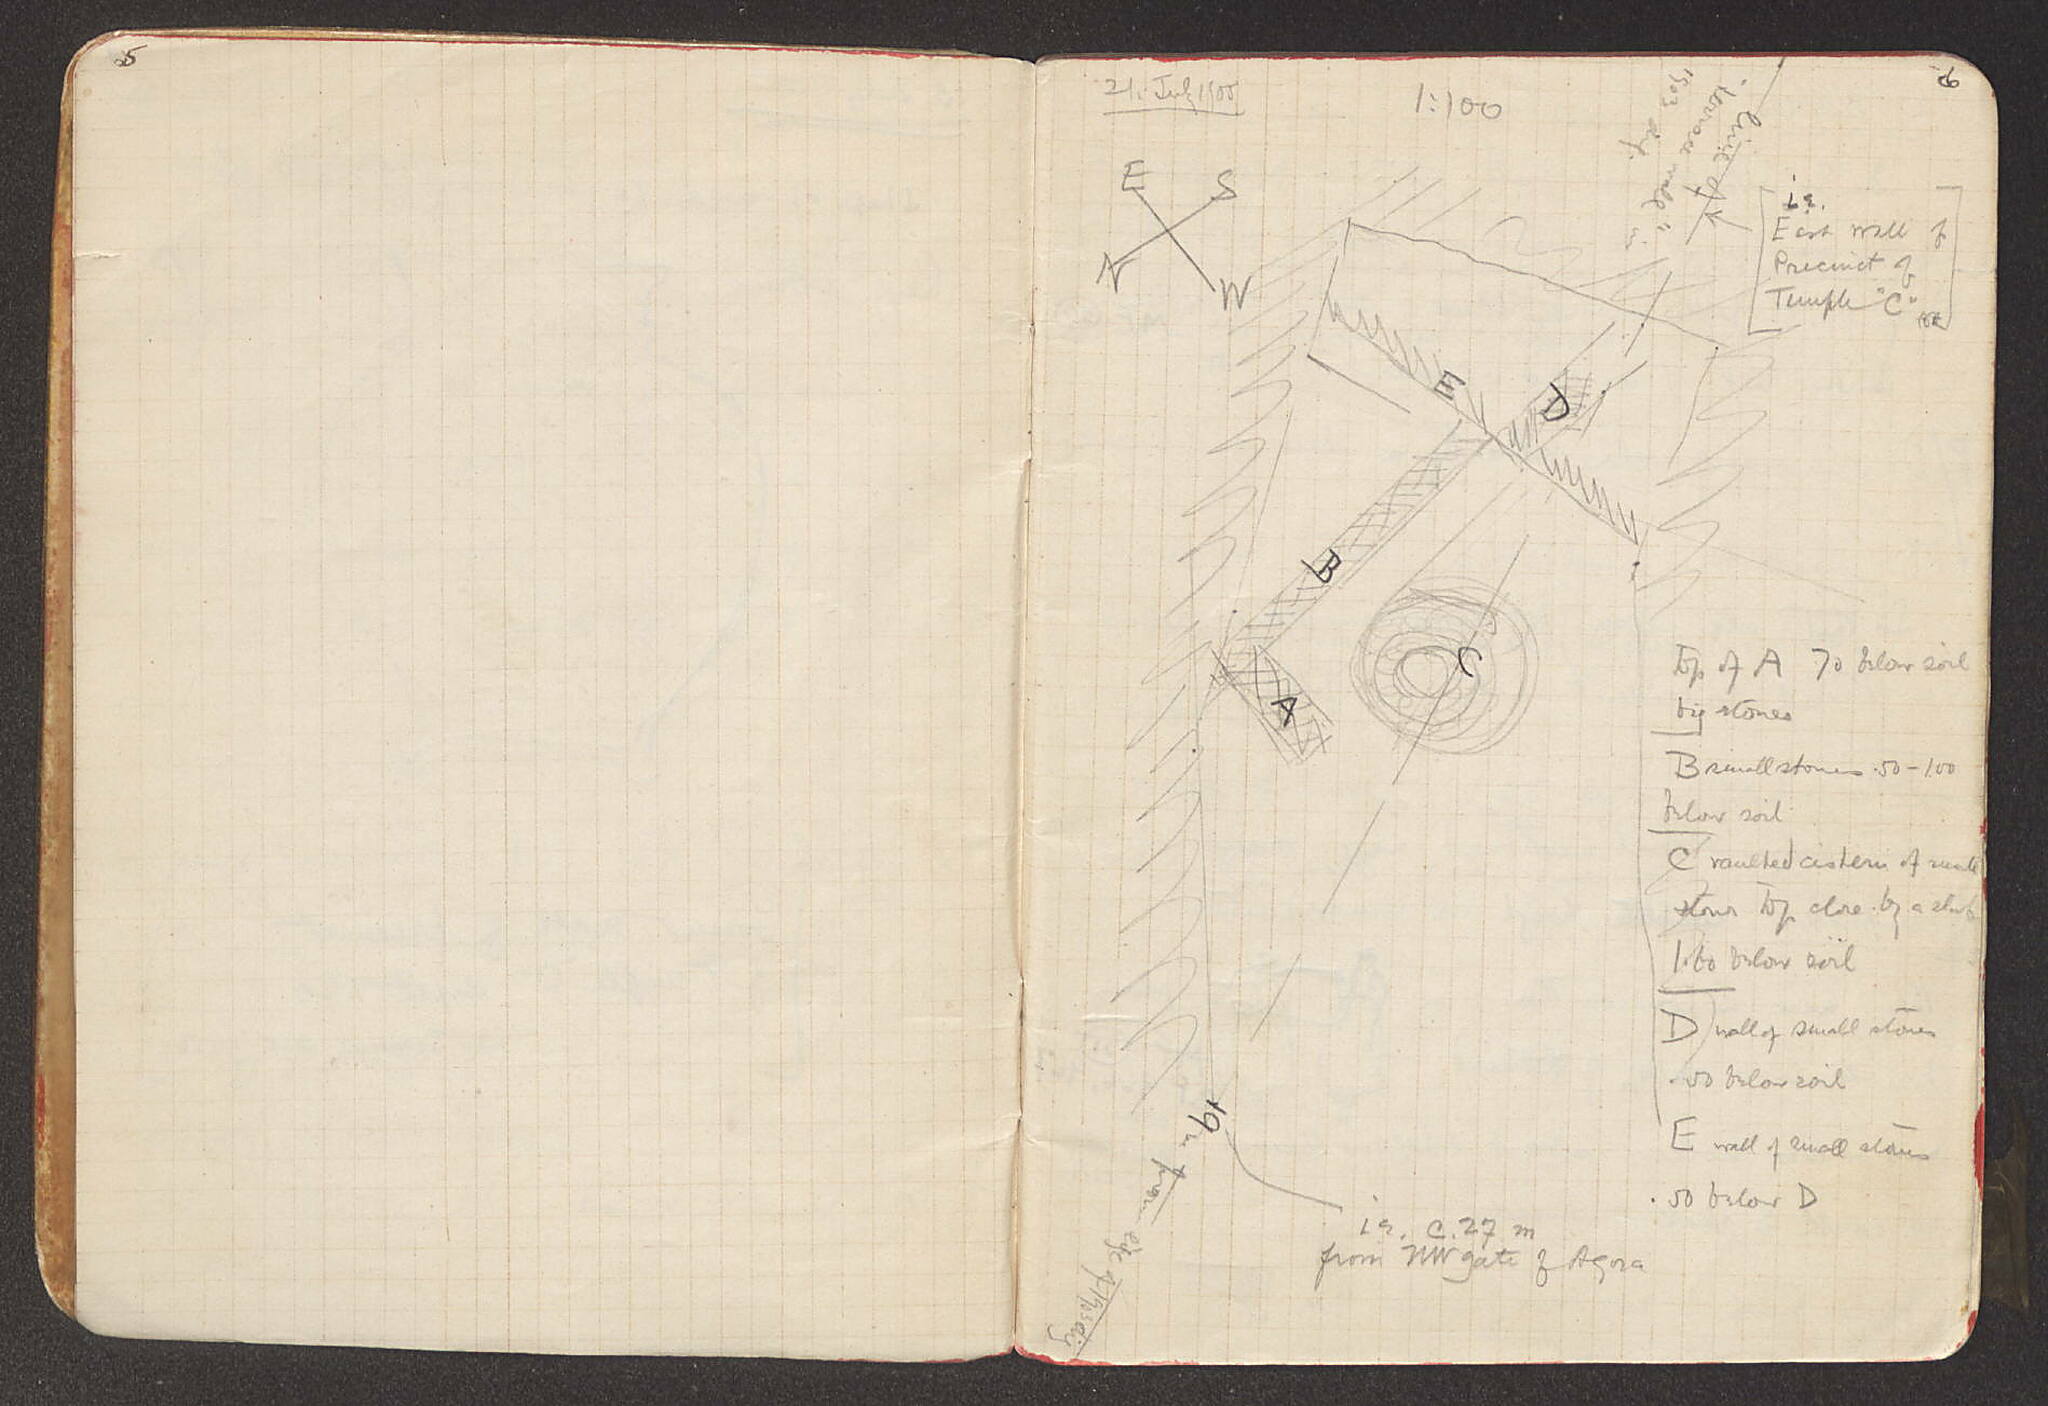 5
6
21. July 1905
1:100
line of
"terrace wall" in
1903 dig.
E
S
N
W
i.e.
East wall of
Precinct of
Temple "C"
E
D
B
C
A
Top of A .70 below soil
big stones
B small stones .50-1.00
below soil
C vaulted cistern of small
stones top close by a slab
1.60 below soil
D wall of small stones
.50 below soil
E wall of small stones
.50 below D
19 m from edge of 1903 dig
i.e. c. 27 m
from NW gate of Agora